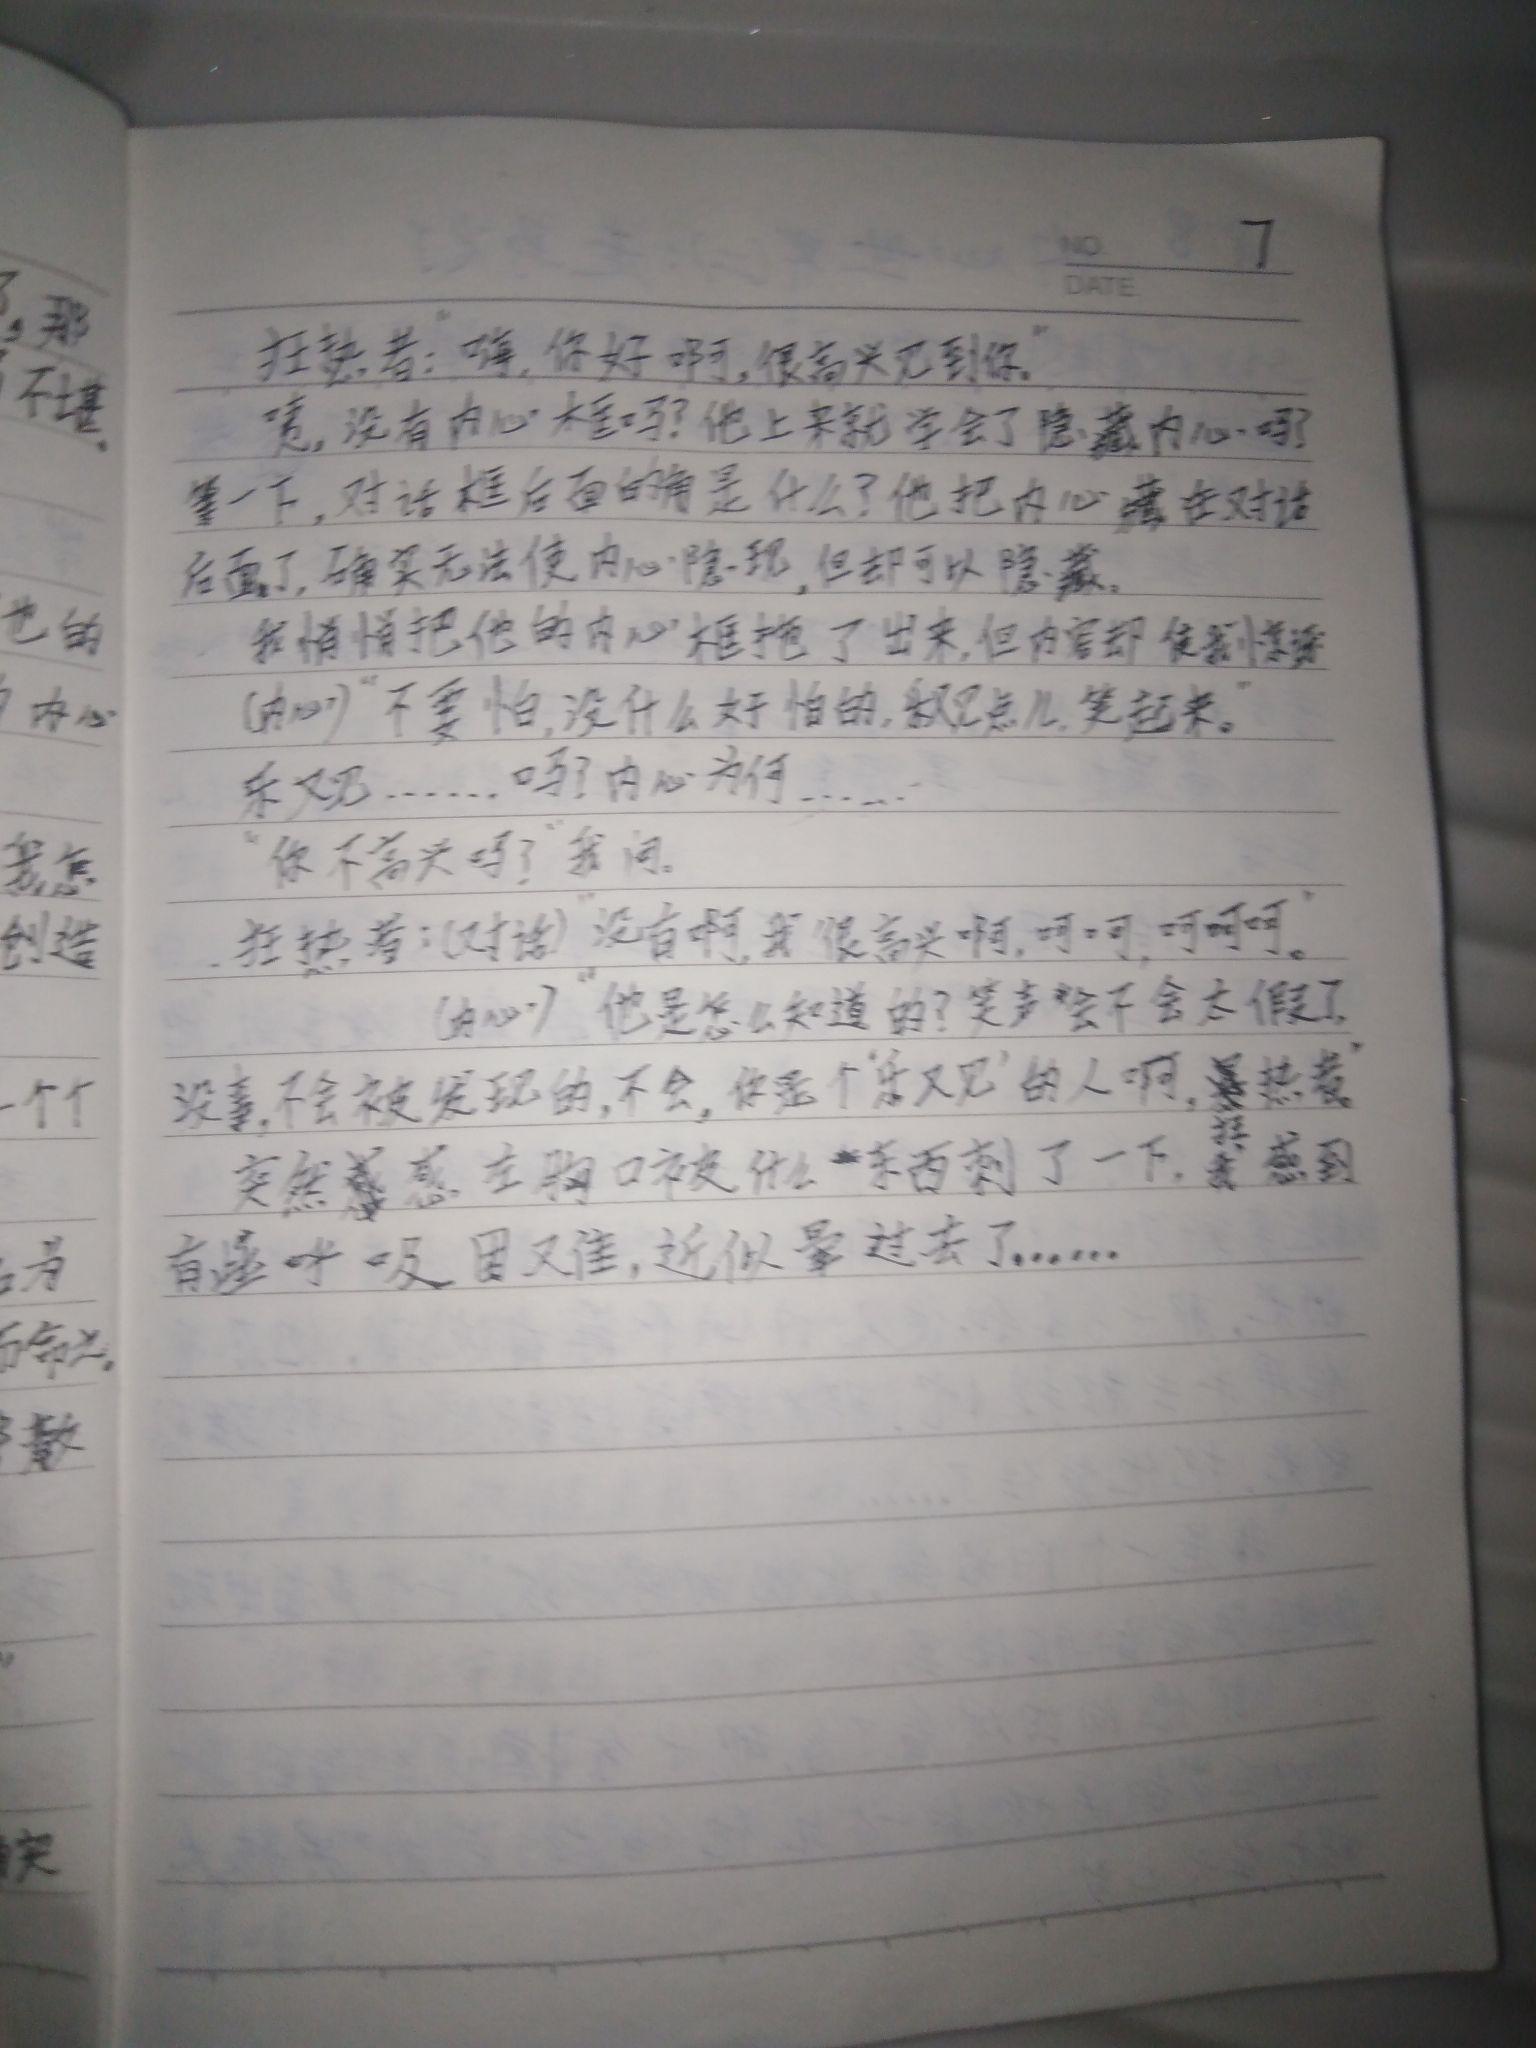 了,那
不堪。
也的
内心
我怎
创造
一个个
名为
而命之。
散
确实
NO 7
DATE
狂热者:“嗨,你好啊,很高兴见到你。”
咦,没有内心框吗?他上来就学会了隐藏内心吗?
等一下,对话框后面的角是什么?他把内心藏在对话
后面了,确实无法使内心隐现,但却可以隐藏。
我悄悄把他的内心框拖了出来,但内容却使我惊讶
(内心)“不要怕,没什么好怕的,点儿,笑起来。”
乐又见……吗?内心为何……
“你不高兴吗?”我问。
狂热者:(对话)“没有啊,我很高兴啊,呵呵,呵呵呵。”
(内心)“他是怎么知道的?笑声会不会太假了,
没事,不会被发现的,不会,你是个‘乐又见’的人啊,狂热者。”
突然感左胸口被什么东西刺了一下,我感到
有些呼吸困又佳,近似晕过去了……